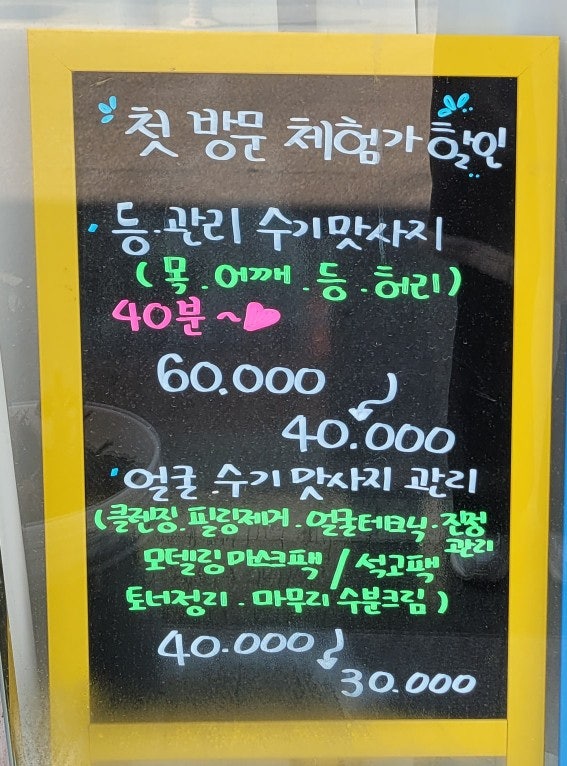 첫 방문 체험가 할인
등.관리 수기맛사지
(목.어깨.등.허리)
40분~
60.000
40.000
얼굴.수기맛사지 관리
(클렌징.필링제거.얼굴테크닉.진정
관리
모델링마스크팩/석고팩
토너정리.마무리 수분크림)
40.000
30.000